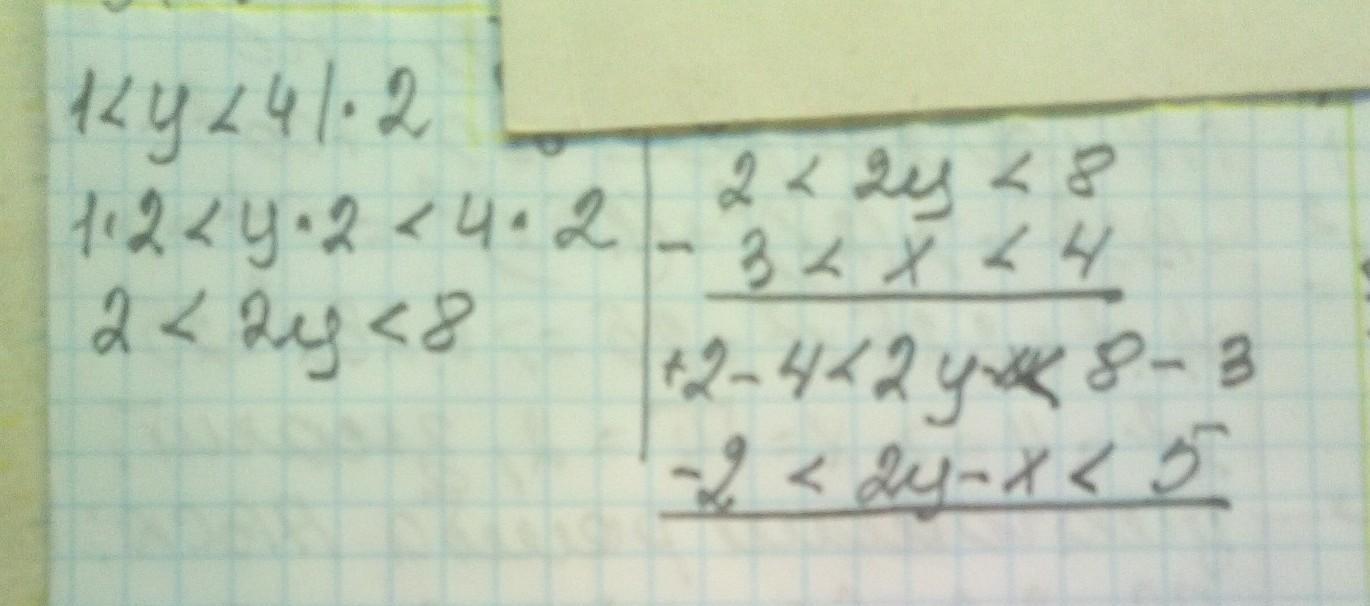 1<y<4|·2
1·2<y·2<4·2
2<2y<8
2<2y<8
- 3<x<4
+2-4<2y-x<8-3
-2<2y-x<5